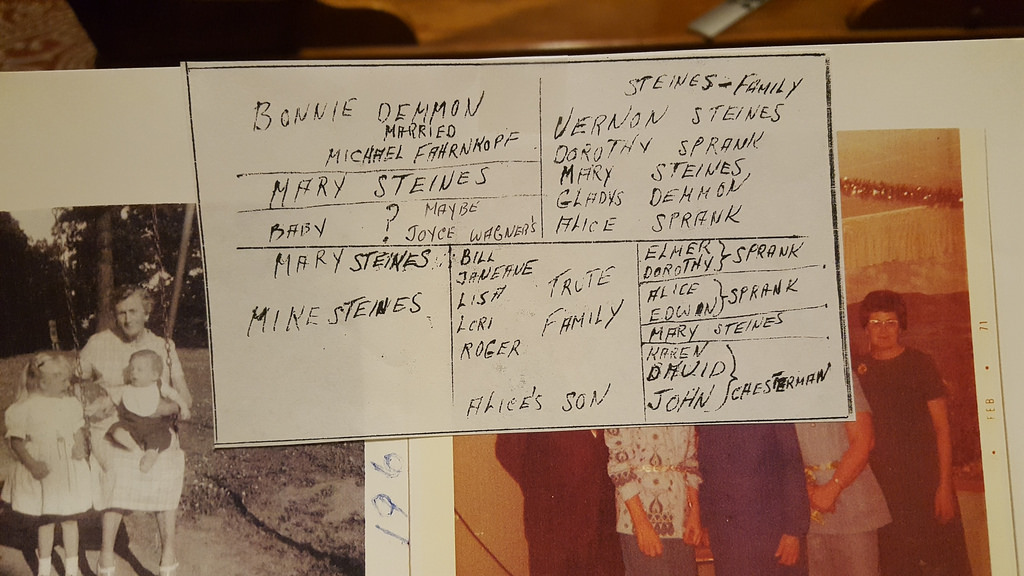 BONNIE DEMMON
MARRIED
MICHAEL FAHRNKOPF
MARY STEINES
BABY ? MAYBE
JOYCE WAGNER'S
STEINES-FAMILY
VERNON STEINES
DOROTHY SPRANK
MARY STEINES
GLADYS DEMMON
ALICE SPRANK
MARY STEINES
MIKE STEINES
BILL
JANEANE
LISA TRUTE
LORI FAMILY
ROGER
ALICE'S SON
ELMER
DOROTHY } SPRANK
ALICE
EDWIN } SPRANK
MARY STEINES
KAREN
DAVID
JOHN } CHESTERMAN
196
FEB • 71